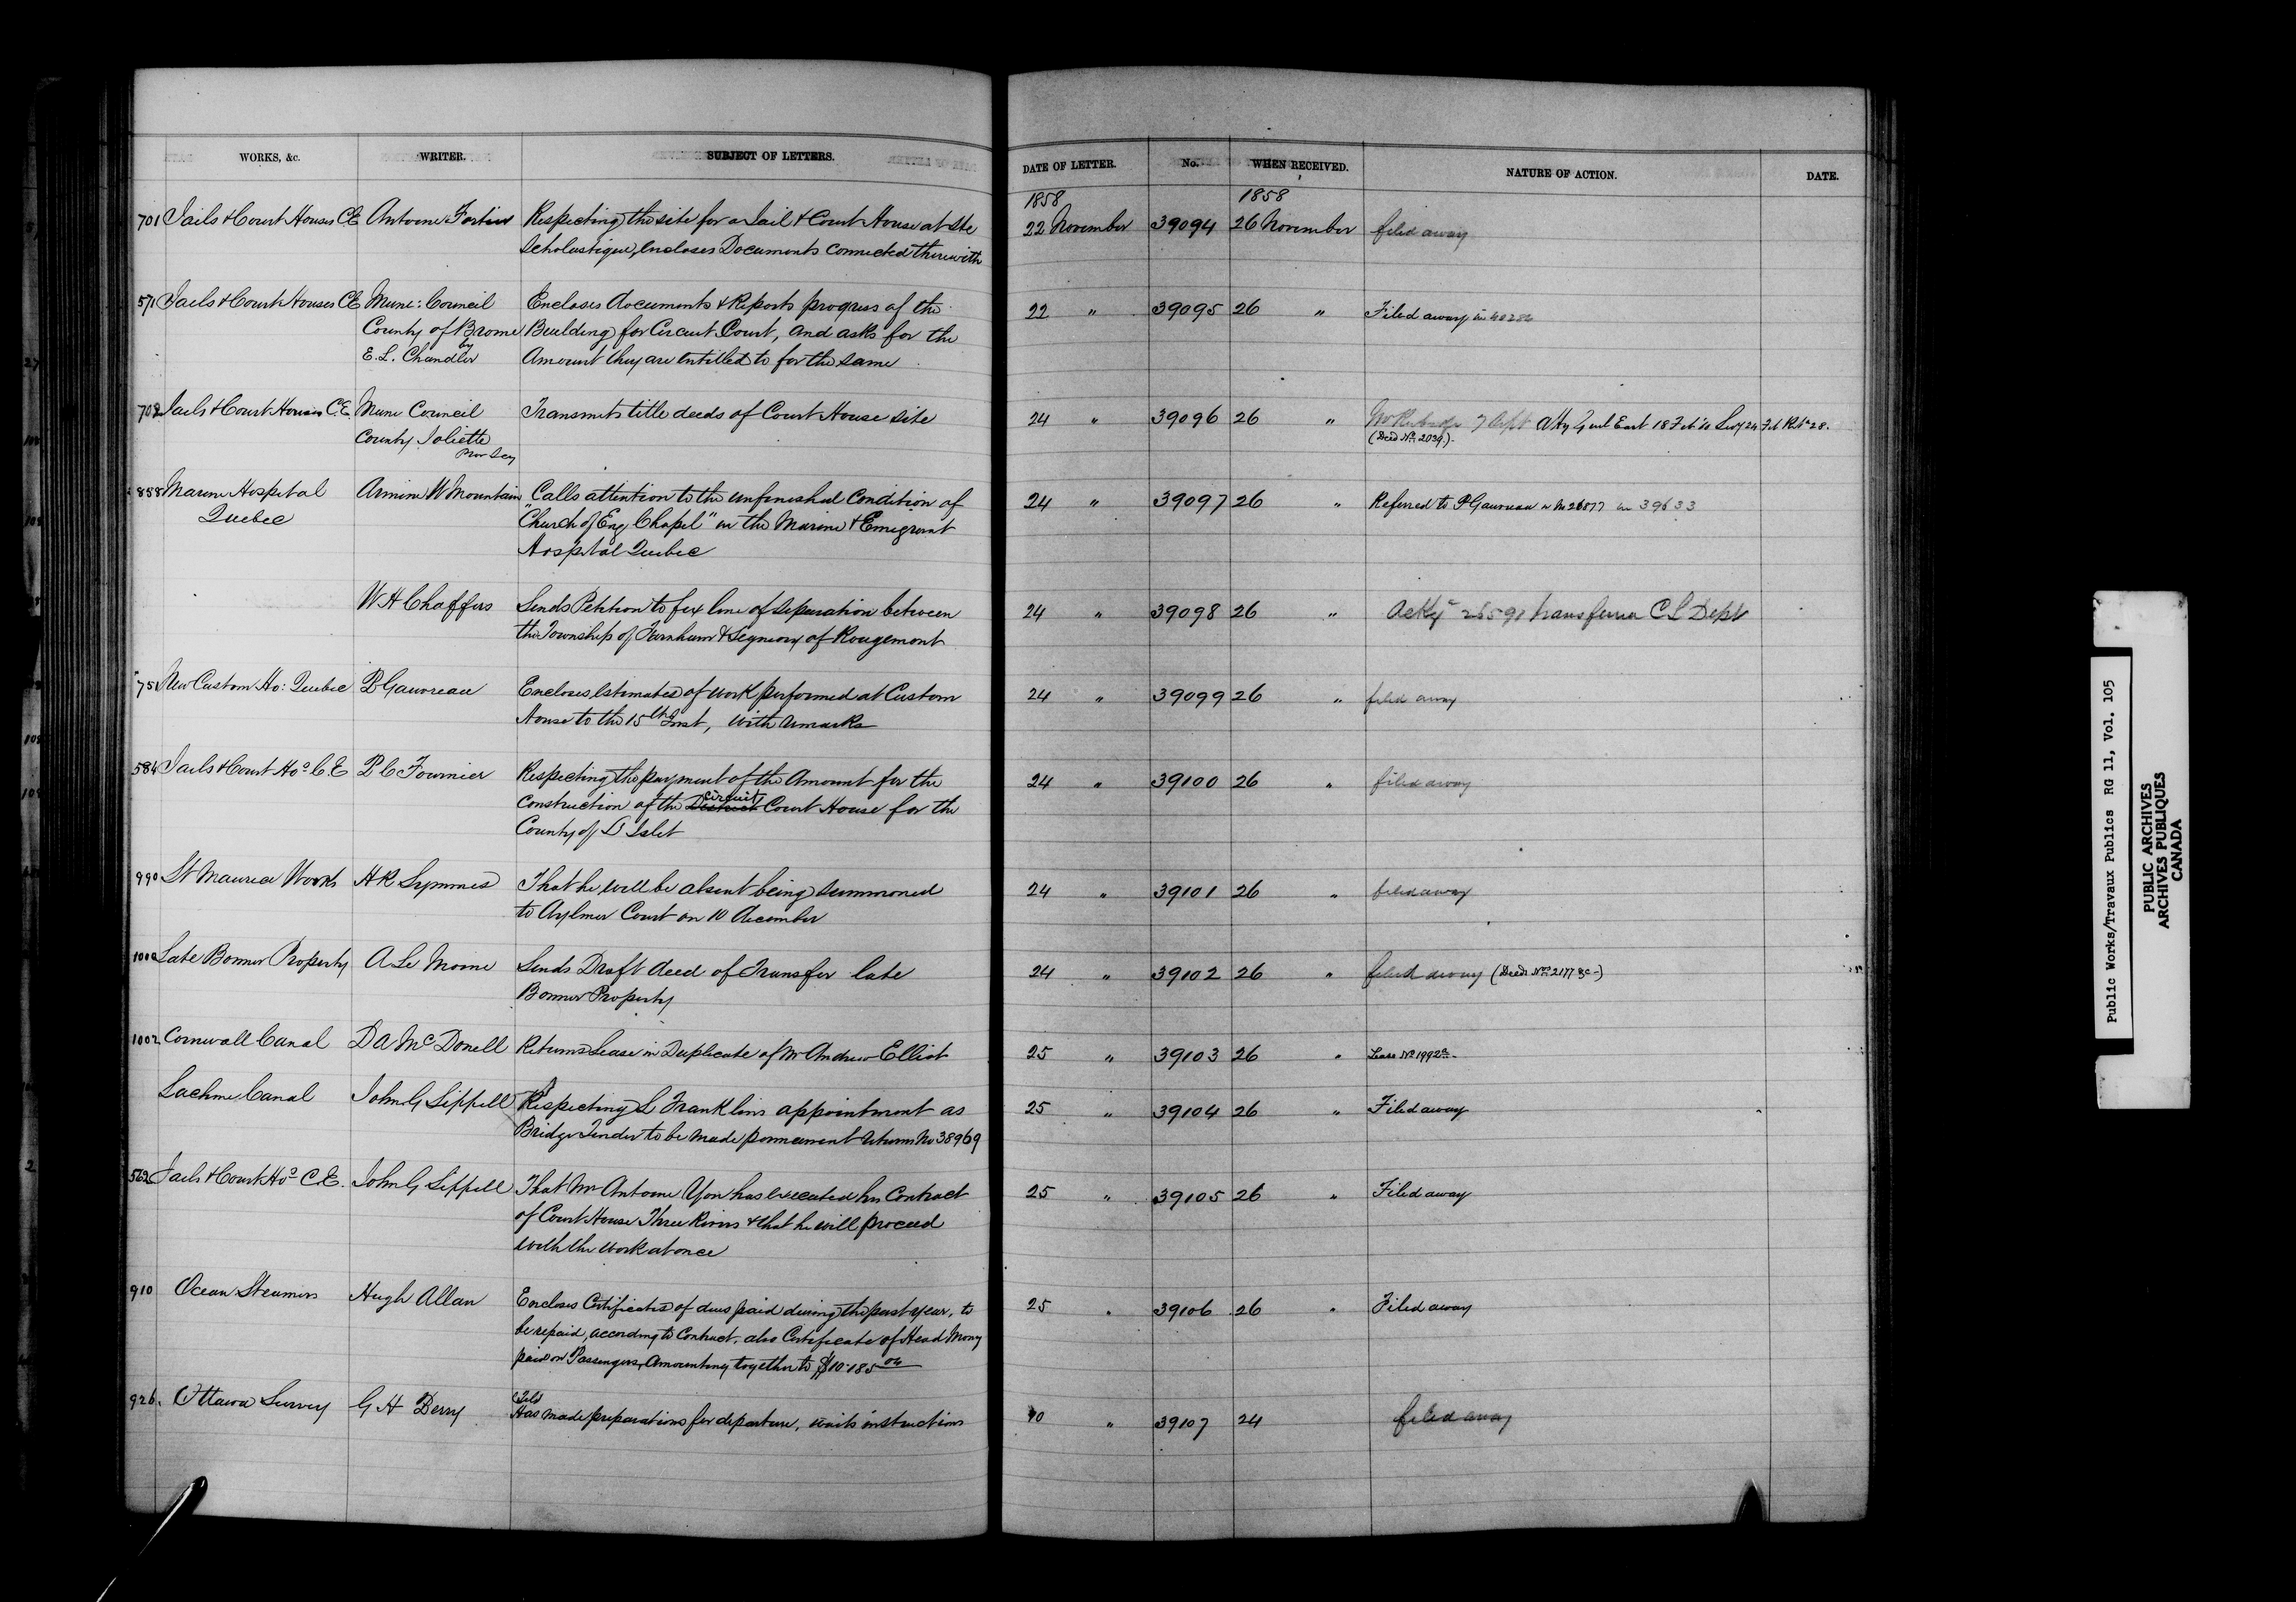 WORKS, &c. WRITER. SUBJECT OF LETTERS. DATE OF LETTER. No. WHEN RECEIVED. NATURE OF ACTION. DATE.
1858 1858
701 Jails & Court Houses C.E Antoine Fortier Respecting the site for a Jail & Court House at Ste 22 November 39094 26 November filed away
Scholastique, encloses Documents connected therewith
571 Jails & Court Houses C.E Muni: Council Encloses documents & Reports progress of the 22 " 39095 26 " Filed away in
County of Brome Building for Circuit Court, and asks for the
by
E. L. Chandler Amount they are entitled to for the same
702 Jails & Court Houses C.E. Muni Council Transmits title deeds of Court House site 24 " 39096 26 " Atty Genl East 18 Feb
County Joliette (Deed No. 2039).
858 Marine Hospital Armine W Mountain Calls attention to the unfinished Condition of 24 " 39097 26 " Referred to P Gauvreau in 39633
Quebec "Church of Eng Chapel" in the Marine & Emigrant
Hospital Quebec
W H Chaffers Sends Petition to fix line of separation between 24 " 39098 26 " 26591 C L Dept
the Township of Farnham & Segniory of Rougemont
751 New Custom Ho: Quebec P Gauvreau Encloses, estimates of work performed at Custom 24 " 39099 26 " filed away
House to the 15th Inst, with remarks
584 Jails & Court Hos C.E P C Fournier Respecting the payment of the Amount for the 24 " 39100 26 " filed away
Construction of the District Circuit Court House for the
County of L'Islet
990 St Maurice Works H R Symmes That he will be absent being summoned 24 " 39101 26 " filed away
to Aylmer Court on 10 December
Late Bonner Property A Le Moine Sends Draft deed of Transfer late 24 " 39102 26 " filed away
Bonner Property
1002 Cornwall Canal D A McDonell Returns Lease in Duplicate of Mr Andrew Elliot 25 " 39103 26 " Lease No 1992
Lachine Canal John G Sippell Respecting L Franklins appointment as 25 " 39104 26 " Filed away
Bridge Tender to be made permanent returns No 38969
562 Jails & Court Hos C.E. John G Sippell That Mr Antoine Yon has executed his Contract 25 " 39105 26 " Filed away
of Court House Three Rivers & that he will proceed
with the work at once
910 Ocean Steamers Hugh Allan Encloses Certificates of dues paid during the past year, to 25 " 39106 26 " Filed away
be repaid, according to Contract. also Certificate of Head Money
paid on Passengers, Amounting together to $10.185
926. Ottawa Survey G H Berry Has made preparations for departure, waits instructions 10 " 39107 24 filed away
Public Works/Travaux Publics RG 11, Vol. 105
PUBLIC ARCHIVES
ARCHIVES PUBLIQUES
CANADA